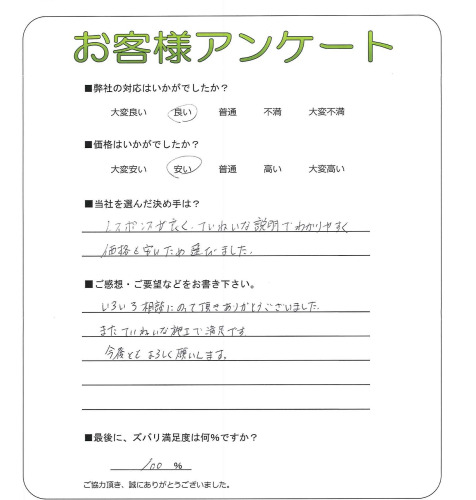 お客様アンケート
■弊社の対応はいかがでしたか？
大変良い 良い 普通 不満 大変不満
■価格はいかがでしたか？
大変安い 安い 普通 高い 大変高い
■当社を選んだ決め手は？
レスポンスが良く、ていねいな説明でわかりやすく
価格も安いため選びました。
■ご感想・ご要望などをお書き下さい。
いろいろ相談にのって頂きありがとうございました。
またていねいな施工で満足です。
今後ともよろしく願いします。
■最後に、ズバリ満足度は何％ですか？
100 ％
ご協力頂き、誠にありがとうございました。